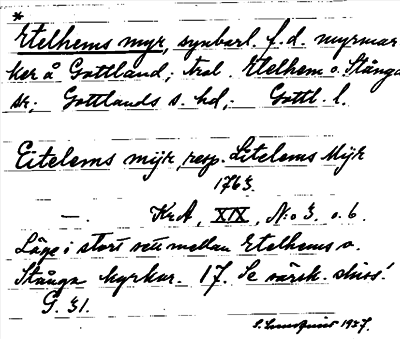 *
Etelhems myr, synbarl. f.d. myrmar
ker å Gottland; trol. Etelhem o. Stånga
sr; Gottlands s. hd; Gottl. l.
Eitelems mijr, resp. Litelems Mijr
1763.
—. KrA, XIX, N:o 3. o. 6.
Läge i stort sett mellan Etelhems o.
Stånga kyrkor. 17. Se särsk. skiss!
G. 31.
S. Lundquist 1937.